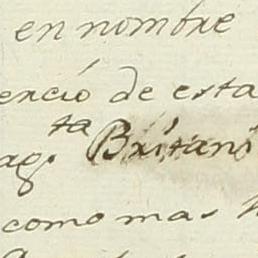 en nombre
erció de esta
ta
ag. Britani
como mas